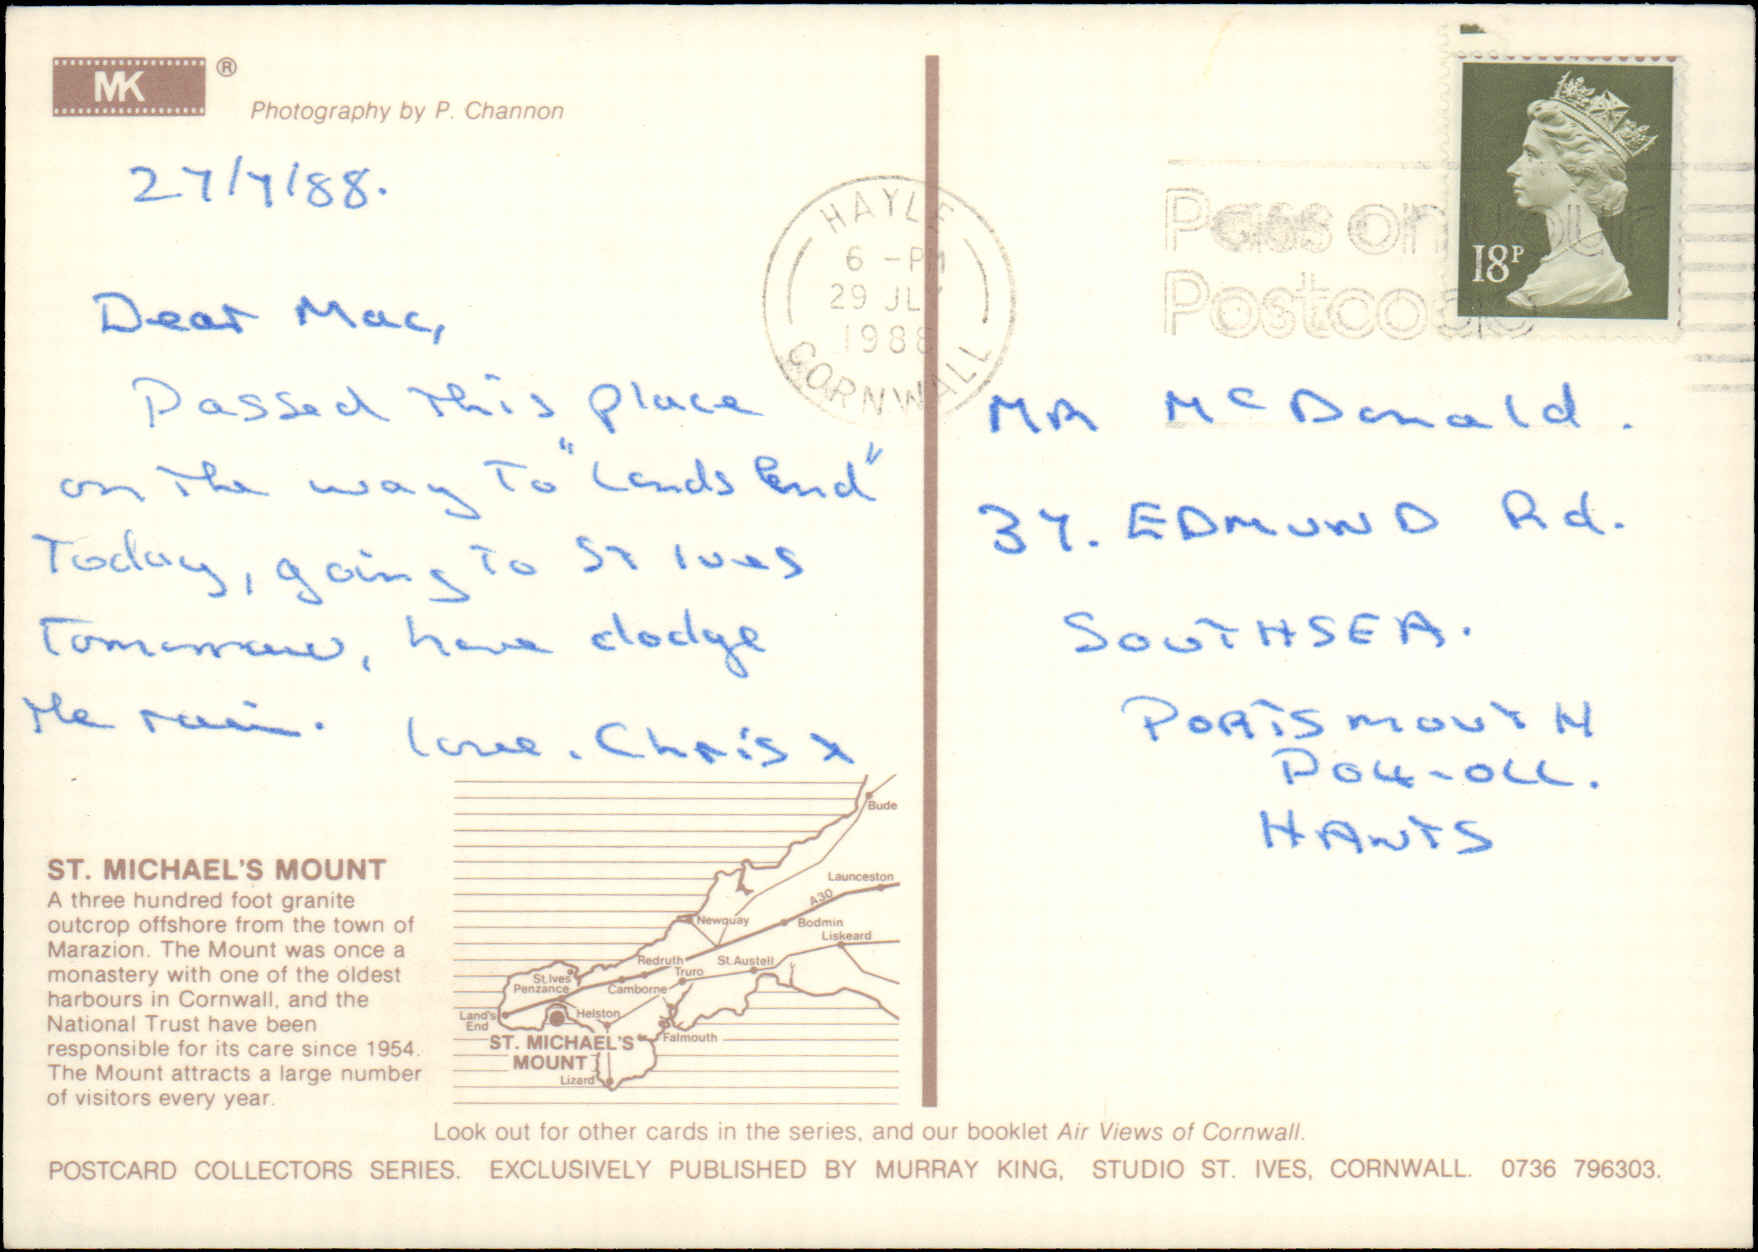 MK ®
Photography by P. Channon
27/7/88.
Dear Mac,
Passed this place
on the way to "Lands End"
Today, going to St Ives
Tomorrow, have dodge
the rain. love. Chris x
ST. MICHAEL'S MOUNT
A three hundred foot granite
outcrop offshore from the town of
Marazion. The Mount was once a
monastery with one of the oldest
harbours in Cornwall, and the
National Trust have been
responsible for its care since 1954.
The Mount attracts a large number
of visitors every year.
Bude
Launceston
A30
Newquay
Bodmin
Liskeard
Redruth
St. Austell
St. Ives
Truro
Penzance
Camborne
Land's
End
Helston
ST. MICHAEL'S
MOUNT
Falmouth
Lizard
HAYLE
6 - PM
29 JLY
1988
CORNWALL
Pass on your
Postcode
18P
MR McDonald.
37. EDMUND Rd.
SOUTHSEA.
PORTSMOUTH
PO4-0LL.
HANTS
Look out for other cards in the series, and our booklet Air Views of Cornwall.
POSTCARD COLLECTORS SERIES. EXCLUSIVELY PUBLISHED BY MURRAY KING, STUDIO ST. IVES, CORNWALL. 0736 796303.